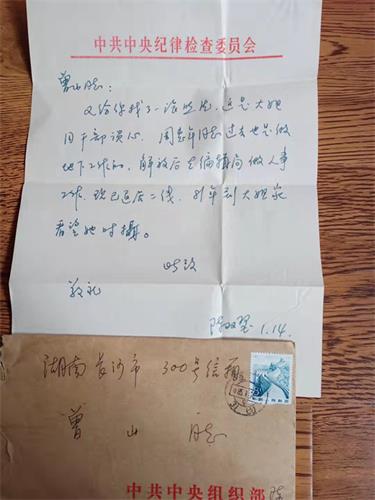 中共中央纪律检查委员会
曾山同志：
又给你找了一张照片，这是大姐
同干部谈心。周惠年同志过去也是做
地下工作的，解放后在编辑局做人事
工作，现已退居二线，81年到大姐家
看望她时摄。
此致
敬礼
1.14.
湖南长沙市 300号信箱
曾 山 同志
中共中央组织部 陈